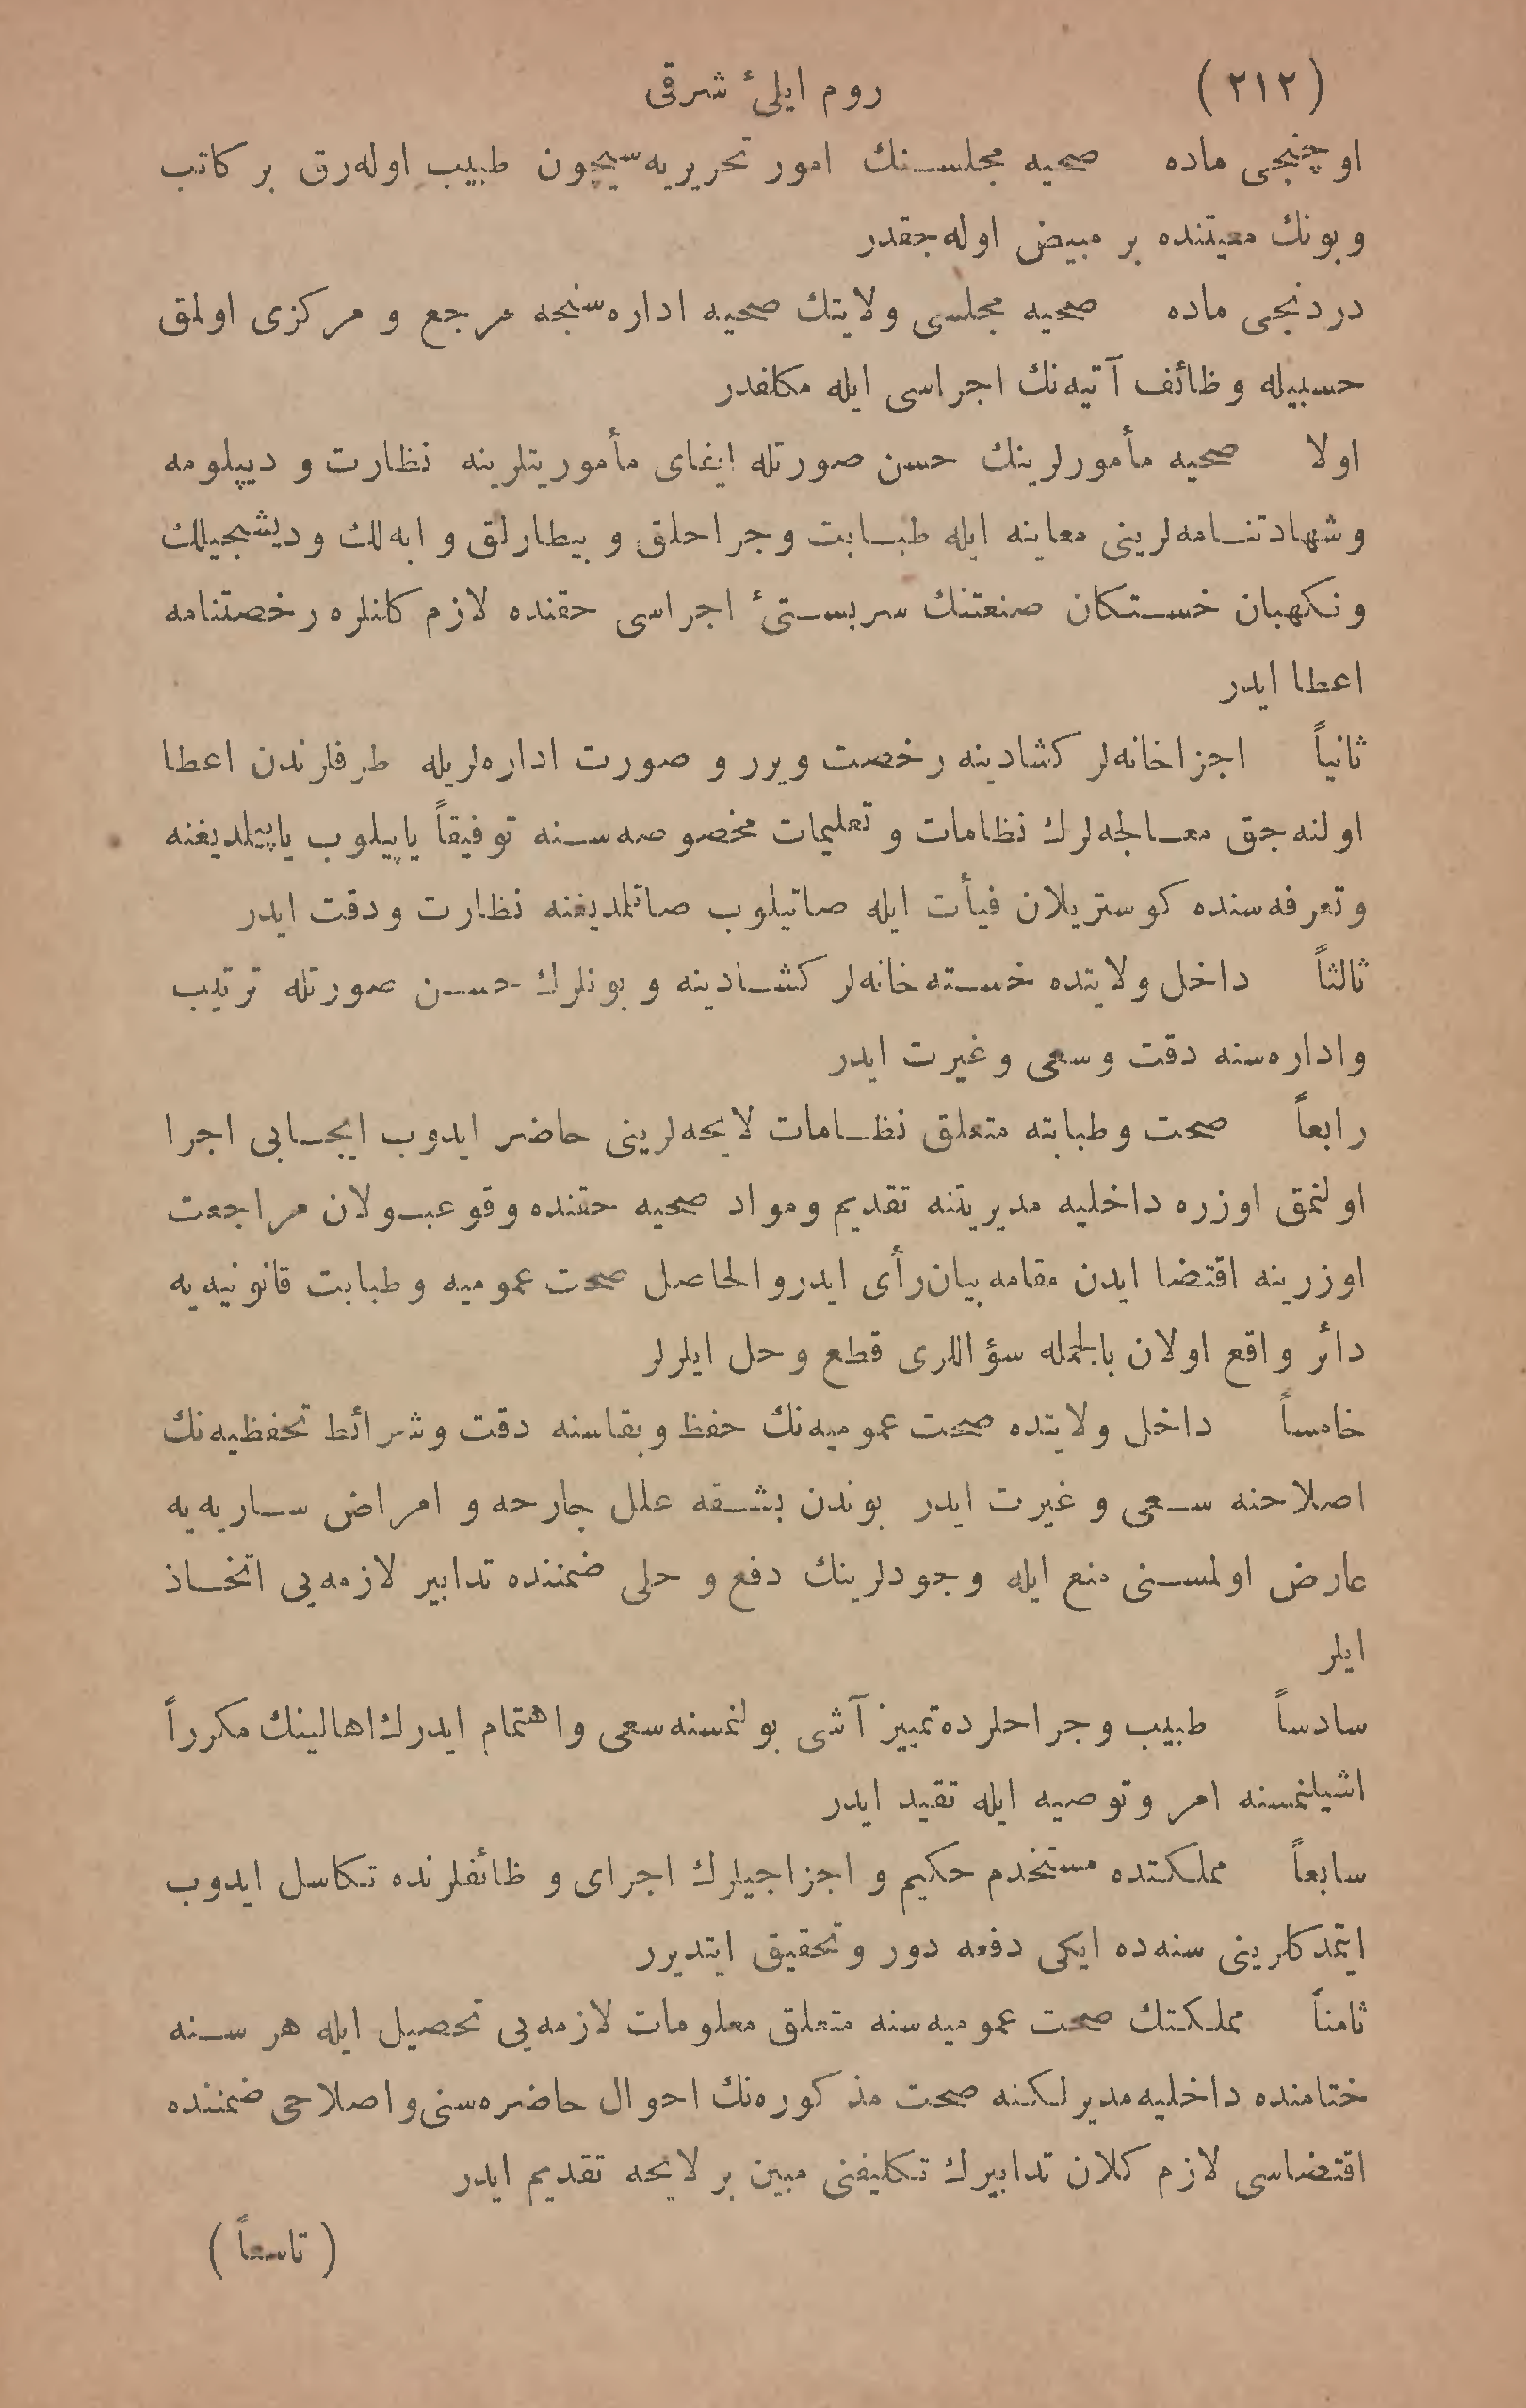 (٢١٢) روم ایلیٔ شرقی
اوچنجی ماده صحیه مجلسنك امور تحریریه‌سیچون طبیب اوله‌رق بر كاتب
وبونك معیتنده بر مبیض اوله‌جقدر
دردنجی ماده صحیه مجلسی ولایتك صحیه اداره‌سنجه مرجع و مركزی اولمق
حسبیله وظائف آتیه‌نك اجراسی ایله مكلفدر
اولا صحیه مأمورلرینك حسن صورتله ایفای مأموریتلرینه نظارت و دیپلومه
وشهادتنامه‌لرینی معاینه ایله طبابت وجراحلق و بیطارلق و ابه‌لك ودیشجیلك
ونكهبان خستكان صنعتنك سربستیٔ اجراسی حقنده لازم كانلره رخصتنامه
اعطا ایدر
ثانیاً اجزاخانه‌لر كشادینه رخصت ویرر و صورت اداره‌لریله طرفلرندن اعطا
اولنه‌جق معالجه‌لرك نظامات و تعلیمات مخصوصه‌سنه توفیقاً یاپیلوب یاپیلمدیغنه
وتعرفه‌سنده كوستریلان فیأت ایله صاتیلوب صاتلمدیغنه نظارت ودقت ایدر
ثالثاً داخل ولایتده خسته‌خانه‌لر كشادینه و بونلرك حسن صورتله ترتیب
واداره‌سنه دقت وسعی وغیرت ایدر
رابعاً صحت وطبابته متعلق نظامات لایحه‌لرینی حاضر ایدوب ایجابی اجرا
اولنمق اوزره داخلیه مدیریتنه تقدیم ومواد صحیه حقنده وقوعبولان مراجعت
اوزرینه اقتضا ایدن مقامه بیان‌رأی ایدر والحاصل صحت عمومیه وطبابت قانونیه‌یه
دائر واقع اولان بالجمله سؤاللری قطع وحل ایلرلر
خامساً داخل ولایتده صحت عمومیه‌نك حفظ وبقاسنه دقت وشرائط تحفظیه‌نك
اصلاحنه سعی و غیرت ایدر بوندن بشقه علل جارحه و امراض ساریه‌یه
عارض اولمسنی منع ایله وجودلرینك دفع و حلی ضمننده تدابیر لازمه‌یی اتخاذ
ایلر
سادساً طبیب وجراحلرده تمییز آشی بولنمسنه سعی واهتمام ایدرك اهالینك مكرراً
اشیلنمسنه امر وتوصیه ایله تقید ایدر
سابعاً مملكتده مستخدم حكیم و اجزاجیلرك اجرای وظائفلرنده تكاسل ایدوب
ایتمدكلرینی سنه‌ده ایكی دفعه دور وتحقیق ایتدیرر
ثامناً مملكتك صحت عمومیه‌سنه متعلق معلومات لازمه‌یی تحصیل ایله هر سنه
ختامنده داخلیه‌مدیرلكنه صحت مذكوره‌نك احوال حاضره‌سنی واصلاحی ضمننده
اقتضاسی لازم كلان تدابیرك تكلیفنی مبین بر لایحه تقدیم ایدر
( تاسعاً )